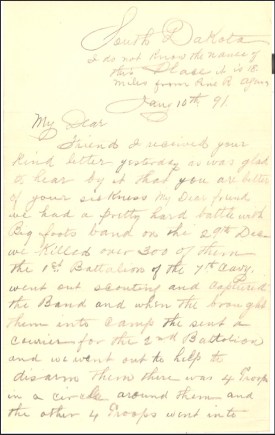 South Dakota
I do not know the names of
this Place it is 18
miles from Pine R Agency
Jany 10th 91
My Dear
Friend I received your
kind letter yesterday as was glad
to hear by it that you are better
of your sickness My Dear friend
we had a pretty hard battle with
Big foots band on the 29th Dec
we killed over 300 of them
the 1st Battalion of the 7th Cavy.
went out skouting and captured
the Band and when the brought
them into camp the sent a
courier for the 2nd Battalion
and we went out to help to
disarm them there was 4 Troops
in a circle around them and
the other 4 Troops went into